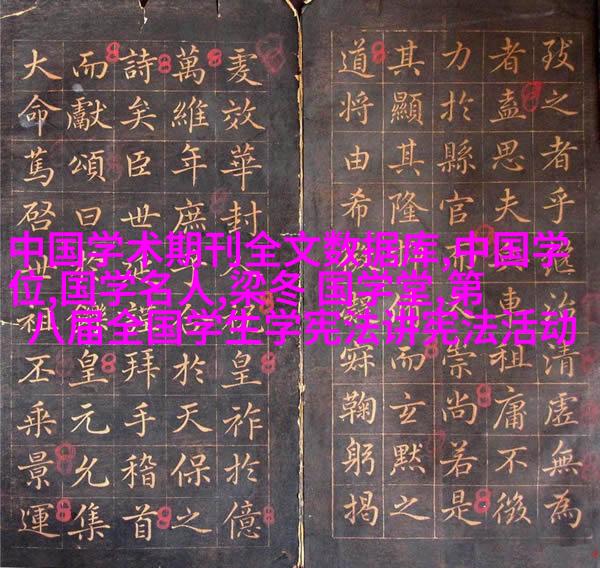 中国学术期刊全文数据库,中国学
位,国学名人,梁冬 国学堂,第
八届全国学生学宪法讲宪法活动
之者乎治清虛無為
者盍思夫祖庸不徼
力於縣官人崇尚若是
其顯其隆儒而玄默之
道將由希鞠躬揭
效華封皇祚於億
萬維年庶於天保之
詩矣臣世拜手稽首
而獻頌曰皇元允集
大命篤啓世祖丕乘景運